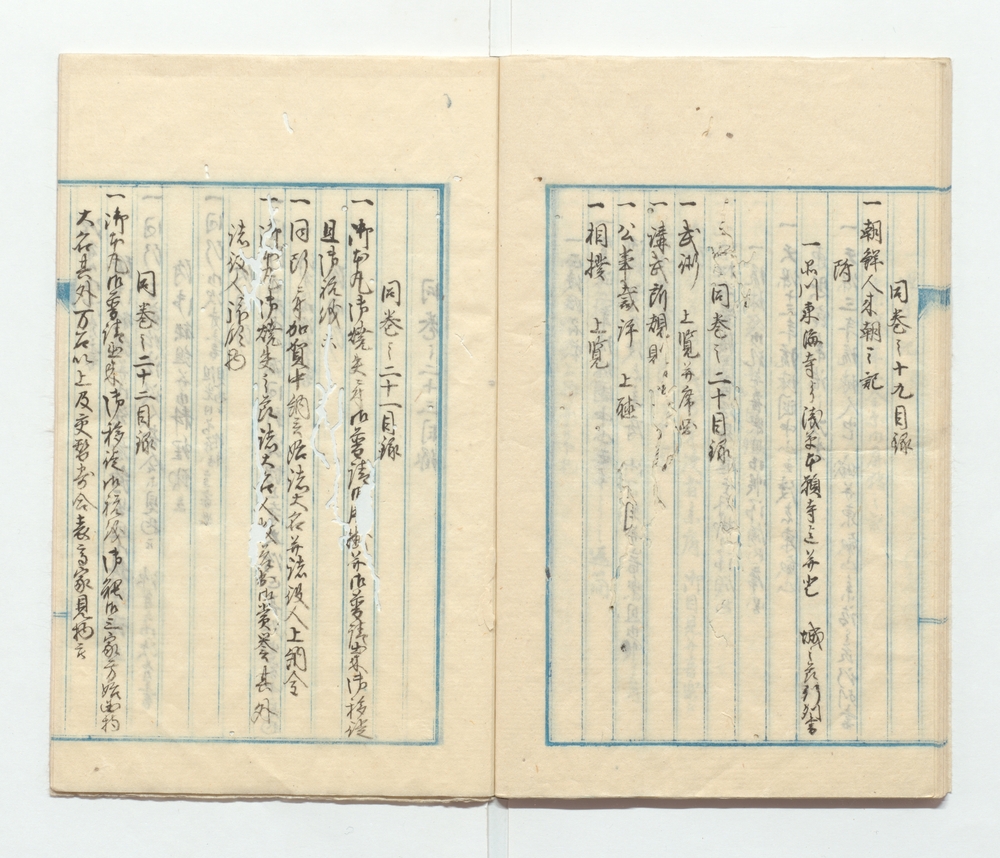 同巻之十九目録
一朝鮮人来朝之記
附
一品川東海寺ゟ浅草本願寺迄并登 城之節行列書
同巻之二十目録
一武術 上覧并席図
一講武所規則
一公事裁許 上聴
一相撲 上覧
同巻之二十一目録
一御本丸御焼失ニ付御普請日月掛并御普請出来御移徙
且御祝儀
一同断ニ付加賀中納言始諸大名并諸役人上納金
一御本丸御焼失之節諸大名人数 御賞誉其外
諸役人御賜物
同巻之二十二目録
一御本丸御普請出来御移徙御祝儀御能御三家方始面物
大名其外万石以上及交替寄合表高家見物